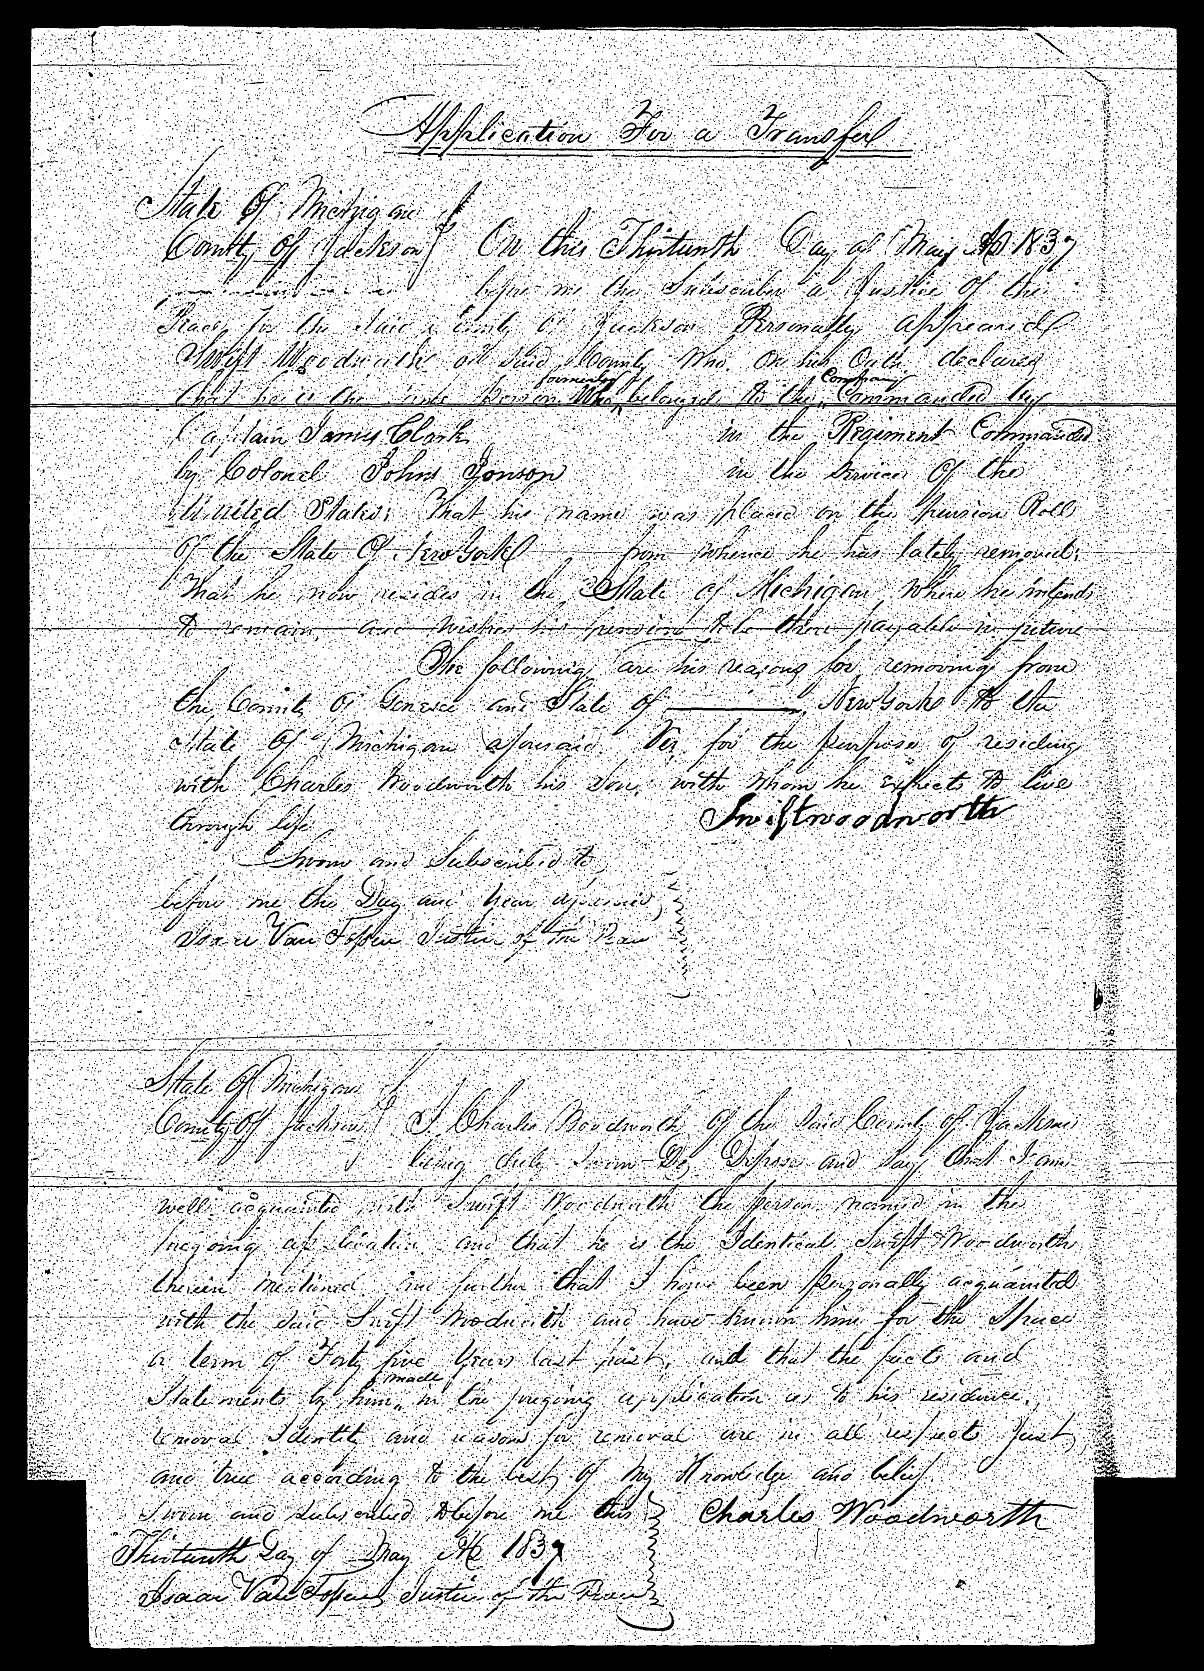 Application For a Transfer
State Of Michigan
County of Jackson On this Thirteenth Day of May AD 1837
before me the Subscriber a Justice Of the
Peace for the said County of Jackson Personally appeared
Swift Woodworth of said County Who, On his Oath, declares
that he is the same Person Who formerly belonged to the Company Commanded by
Captain James Clark in the Regiment Commanded
by Colonel Johns Jonson in the service Of the
United States; That his name was placed on the pension Roll
Of the State Of New York from whence he has lately removed;
That he now resides in the State of Michigan Where he intends
to remain, and wishes his pension to be there payable in future
The following are his reasons for removing from
the County of Genesee and State of New York to the
State Of Michigan aforesaid. Viz, for the purpose of residing
with Charles Woodworth his Son, with Whom he expects to live
through life
Swift woodworth
Sworn and Subscribed to
before me the Day and Year aforesaid
Isaac Van Fossen Justice of the Peace
State Of Michigan
County Of Jackson I Charles Woodworth Of the said County of Jackson
being duly sworn Do, Depose and say that I am
well acquainted with Swift Woodworth the person named in the
foregoing application and that he is the Identical Swift Woodworth
therein mentioned and further that I have been personally acquainted
with the said Swift Woodworth and have known him for the Space
or term of Forty five Years last past, and that the facts and
Statements by him made in the foregoing application as to his residence,
removal Identity and reasons for removal are in all respects Just,
and true according to the best of My Knowledge and belief
Sworn and subscribed to before me this Charles Woodworth
Thirteenth Day of May AD 1837
Isaac Van Fossen Justice of the Peace